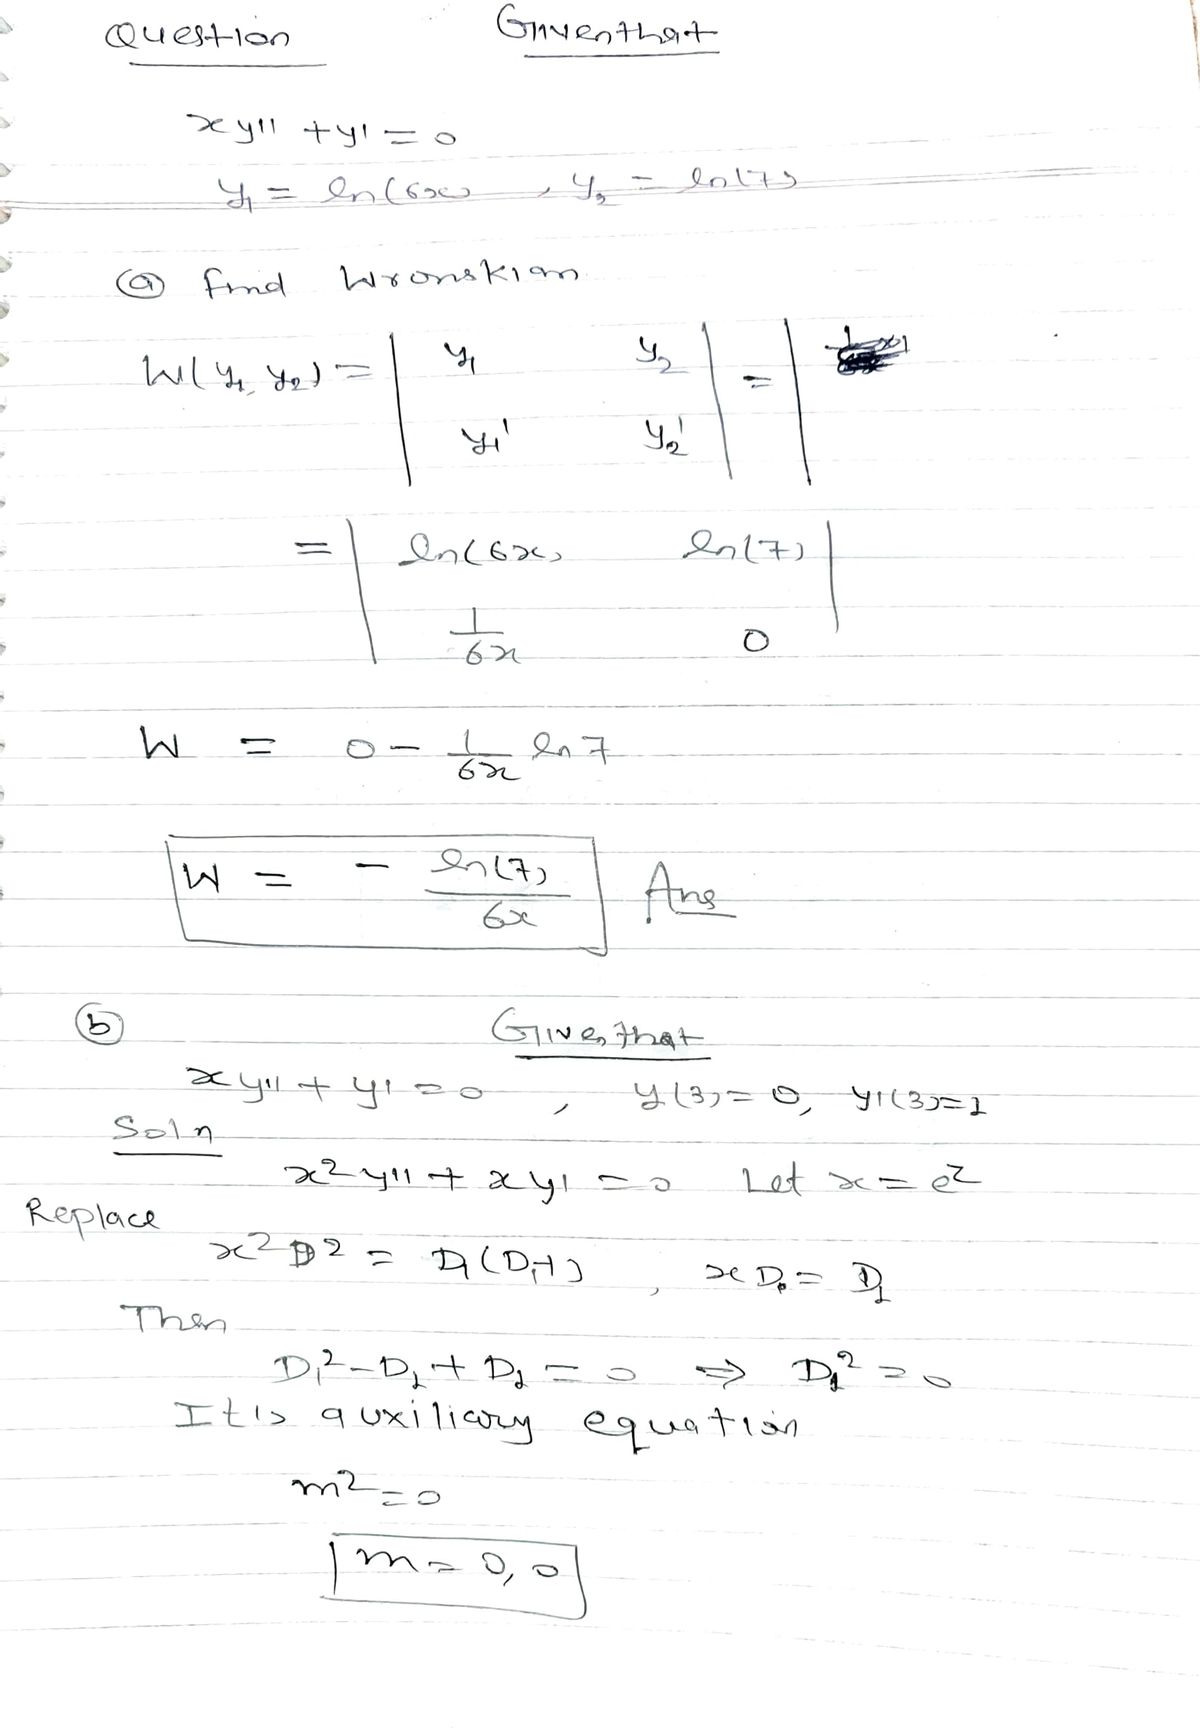 Question Given that
xy'' + y' = 0
y₁ = ln(6x) , y₂ = ln(7)
(a) find Wronskian
W(y₁, y₂) = | y₁ y₂ | = |
y₁' y₂'
= | ln(6x) ln(7) |
1/6x 0
W = 0 - 1/6x ln 7
W = - ln(7)/6x Ans
(b) Given that
xy'' + y' = 0 , y(3) = 0, y'(3) = 1
Soln
x²y'' + xy' = 0 Let x = e^z
Replace
x²D² = D₁(D₁-1) , xD = D₁
Then
D₁² - D₁ + D₁ = 0 ⇒ D₁² = 0
It is auxiliary equation
m² = 0
m = 0, 0